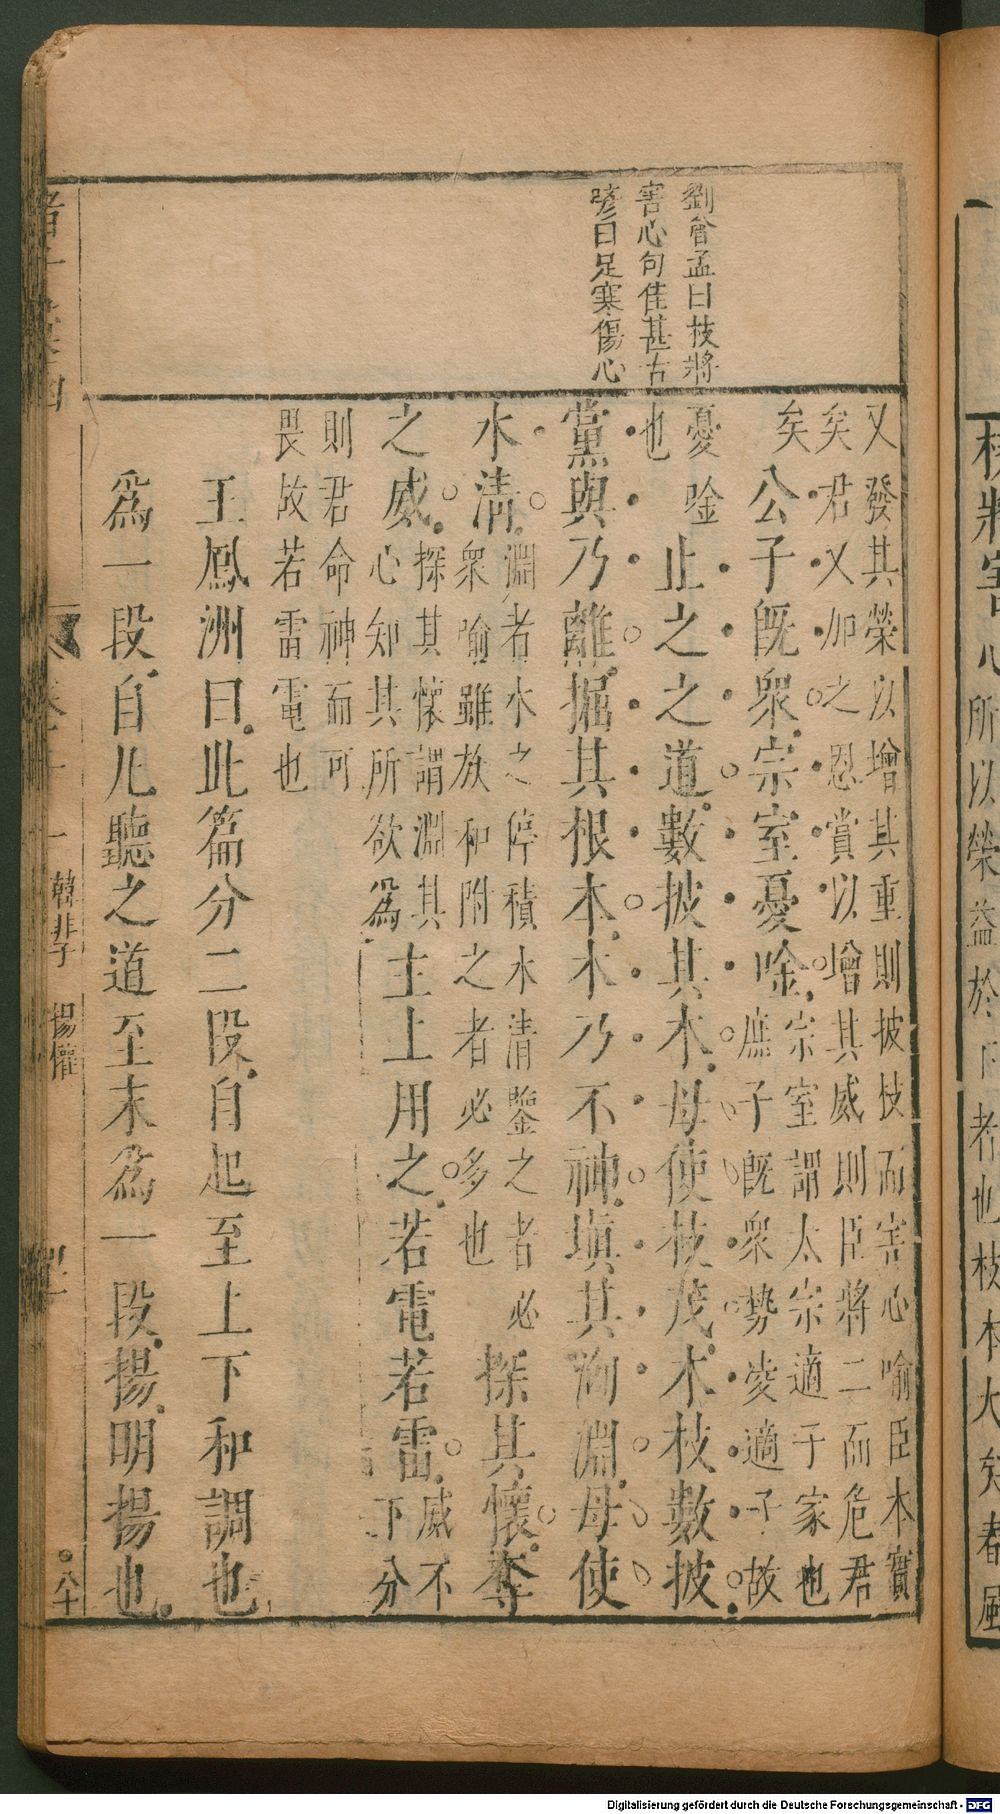 劉會孟曰枝將
害心句佳甚古
諺曰足寒傷心
又發其榮以增其重則披枝而害心喻臣本實
矣君又加之恩賞以增其威則臣將二而危君
矣公子既眾宗室憂唫宗室謂太宗適于家也
庶子既眾勢凌適子故
憂唫
也止之之道數披其木毋使枝茂木枝數披
黨與乃離掘其根本木乃不神塡其洶淵毋使
水清淵者水之停積水清鑒之者必
眾喻雖放和附之者必多也探其懷奪
之威探其懷謂淵其
心知其所欲為主上用之若電若雷威不
下分
則君命神而可
畏故若雷電也
王鳳洲曰此篇分二段自起至上下和調也
為一段自凡聽之道至末為一段揚明揚也
韓非子 揚權
八十
枝將害心所以榮益於 者也枝本大矣春風
Digitalisierung gefördert durch die Deutsche Forschungsgemeinschaft - DFG